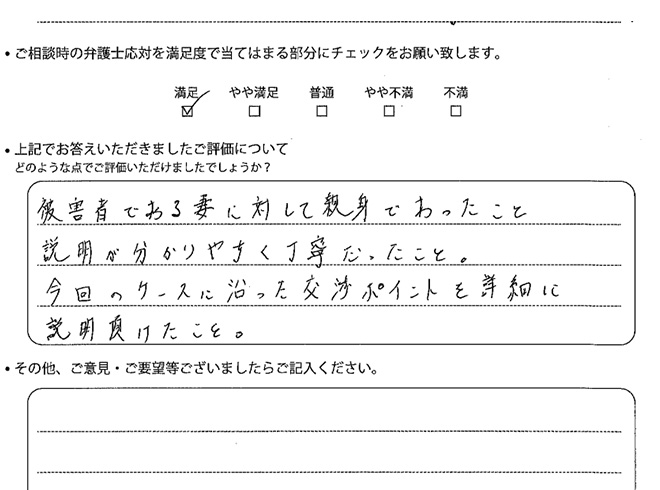 ・ご相談時の弁護士応対を満足度で当てはまる部分にチェックをお願い致します。
満足 やや満足 普通 やや不満 不満
☑ □ □ □ □
・上記でお答えいただきましたご評価について
どのような点でご評価いただけましたでしょうか？
被害者である妻に対して親身であったこと
説明が分かりやすく丁寧だったこと。
今回のケースに沿った交渉ポイントを詳細に
説明頂けたこと。
・その他、ご意見・ご要望等ございましたらご記入ください。